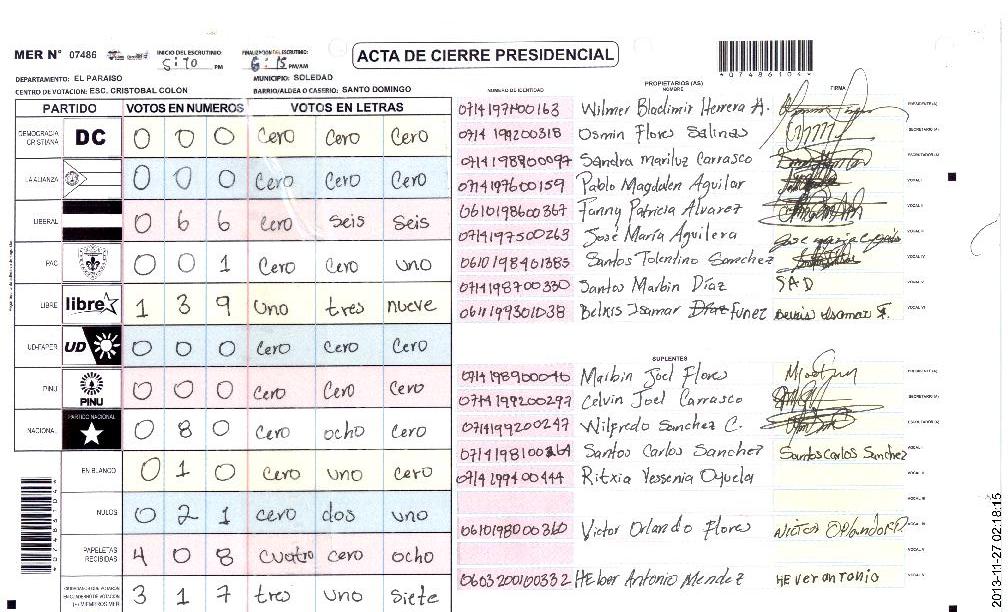 MER N° 07486 INICIO DEL ESCRUTINIO: 5:10 PM FINALIZACION DEL ESCRUTINIO: 6:15 PM/AM
ACTA DE CIERRE PRESIDENCIAL
*07486104*
DEPARTAMENTO: EL PARAISO MUNICIPIO: SOLEDAD
CENTRO DE VOTACION: ESC. CRISTOBAL COLÓN BARRIO/ALDEA O CASERIO: SANTO DOMINGO
PARTIDO VOTOS EN NUMEROS VOTOS EN LETRAS
DEMOCRACIA CRISTIANA DC 0 0 0 Cero Cero Cero
LA ALIANZA 0 0 0 Cero Cero Cero
LIBERAL 0 6 6 Cero seis Seis
PAC 0 0 1 Cero Cero uno
LIBRE libre 1 3 9 Uno tres nueve
UD-FAPER UD 0 0 0 Cero Cero Cero
PINU PINU 0 0 0 Cero Cero Cero
NACIONAL PARTIDO NACIONAL 0 8 0 Cero ocho Cero
EN BLANCO 0 1 0 Cero uno cero
NULOS 0 2 1 cero dos uno
PAPELETAS RECIBIDAS 4 0 8 Cuatro cero ocho
3 1 7 tres uno Siete
NÚMERO DE IDENTIDAD PROPIETARIOS (AS) NOMBRE FIRMA
0714197400163 Wilmer Bladimir Herrera A. PRESIDENTE(A)
0714199200318 Osmin Flores Salinas SECRETARIO(A)
0714198900097 Sandra Mariluz Carrasco ESCRUTADOR(A)
0714197600159 Pablo Magdalen Aguilar VOCAL I
0610198600367 Fanny Patricia Alvarez VOCAL II
0714197500263 José María Aguilera VOCAL III
0610198401385 Santos Tolentino Sanchez VOCAL IV
0714198700330 Santos Marbin Díaz SAD VOCAL V
0611199301038 Belkis Isamar Díaz Funez Belkis Isamar F. VOCAL VI
SUPLENTES
NOMBRE
0714198900046 Maibin Joel Flores PRESIDENTE(A)
0714199200297 Celvin Joel Carrasco SECRETARIO(A)
0714199200247 Wilfredo Sanchez C. ESCRUTADOR(A)
0714198100264 Santos Carlos Sanchez Santos Carlos Sanchez VOCAL I
0714199400444 Ritxia Yessenia Oyuela VOCAL II
VOCAL III
0610198000360 Victor Orlando Flores VICTOR ORLANDO F. VOCAL IV
VOCAL V
0603200100332 HEber Antonio Mendez HEver antonio VOCAL VI
*07486104*
2013-11-27 02:18:15